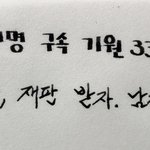 명 구속 기원 33
, 재판 받자. 남